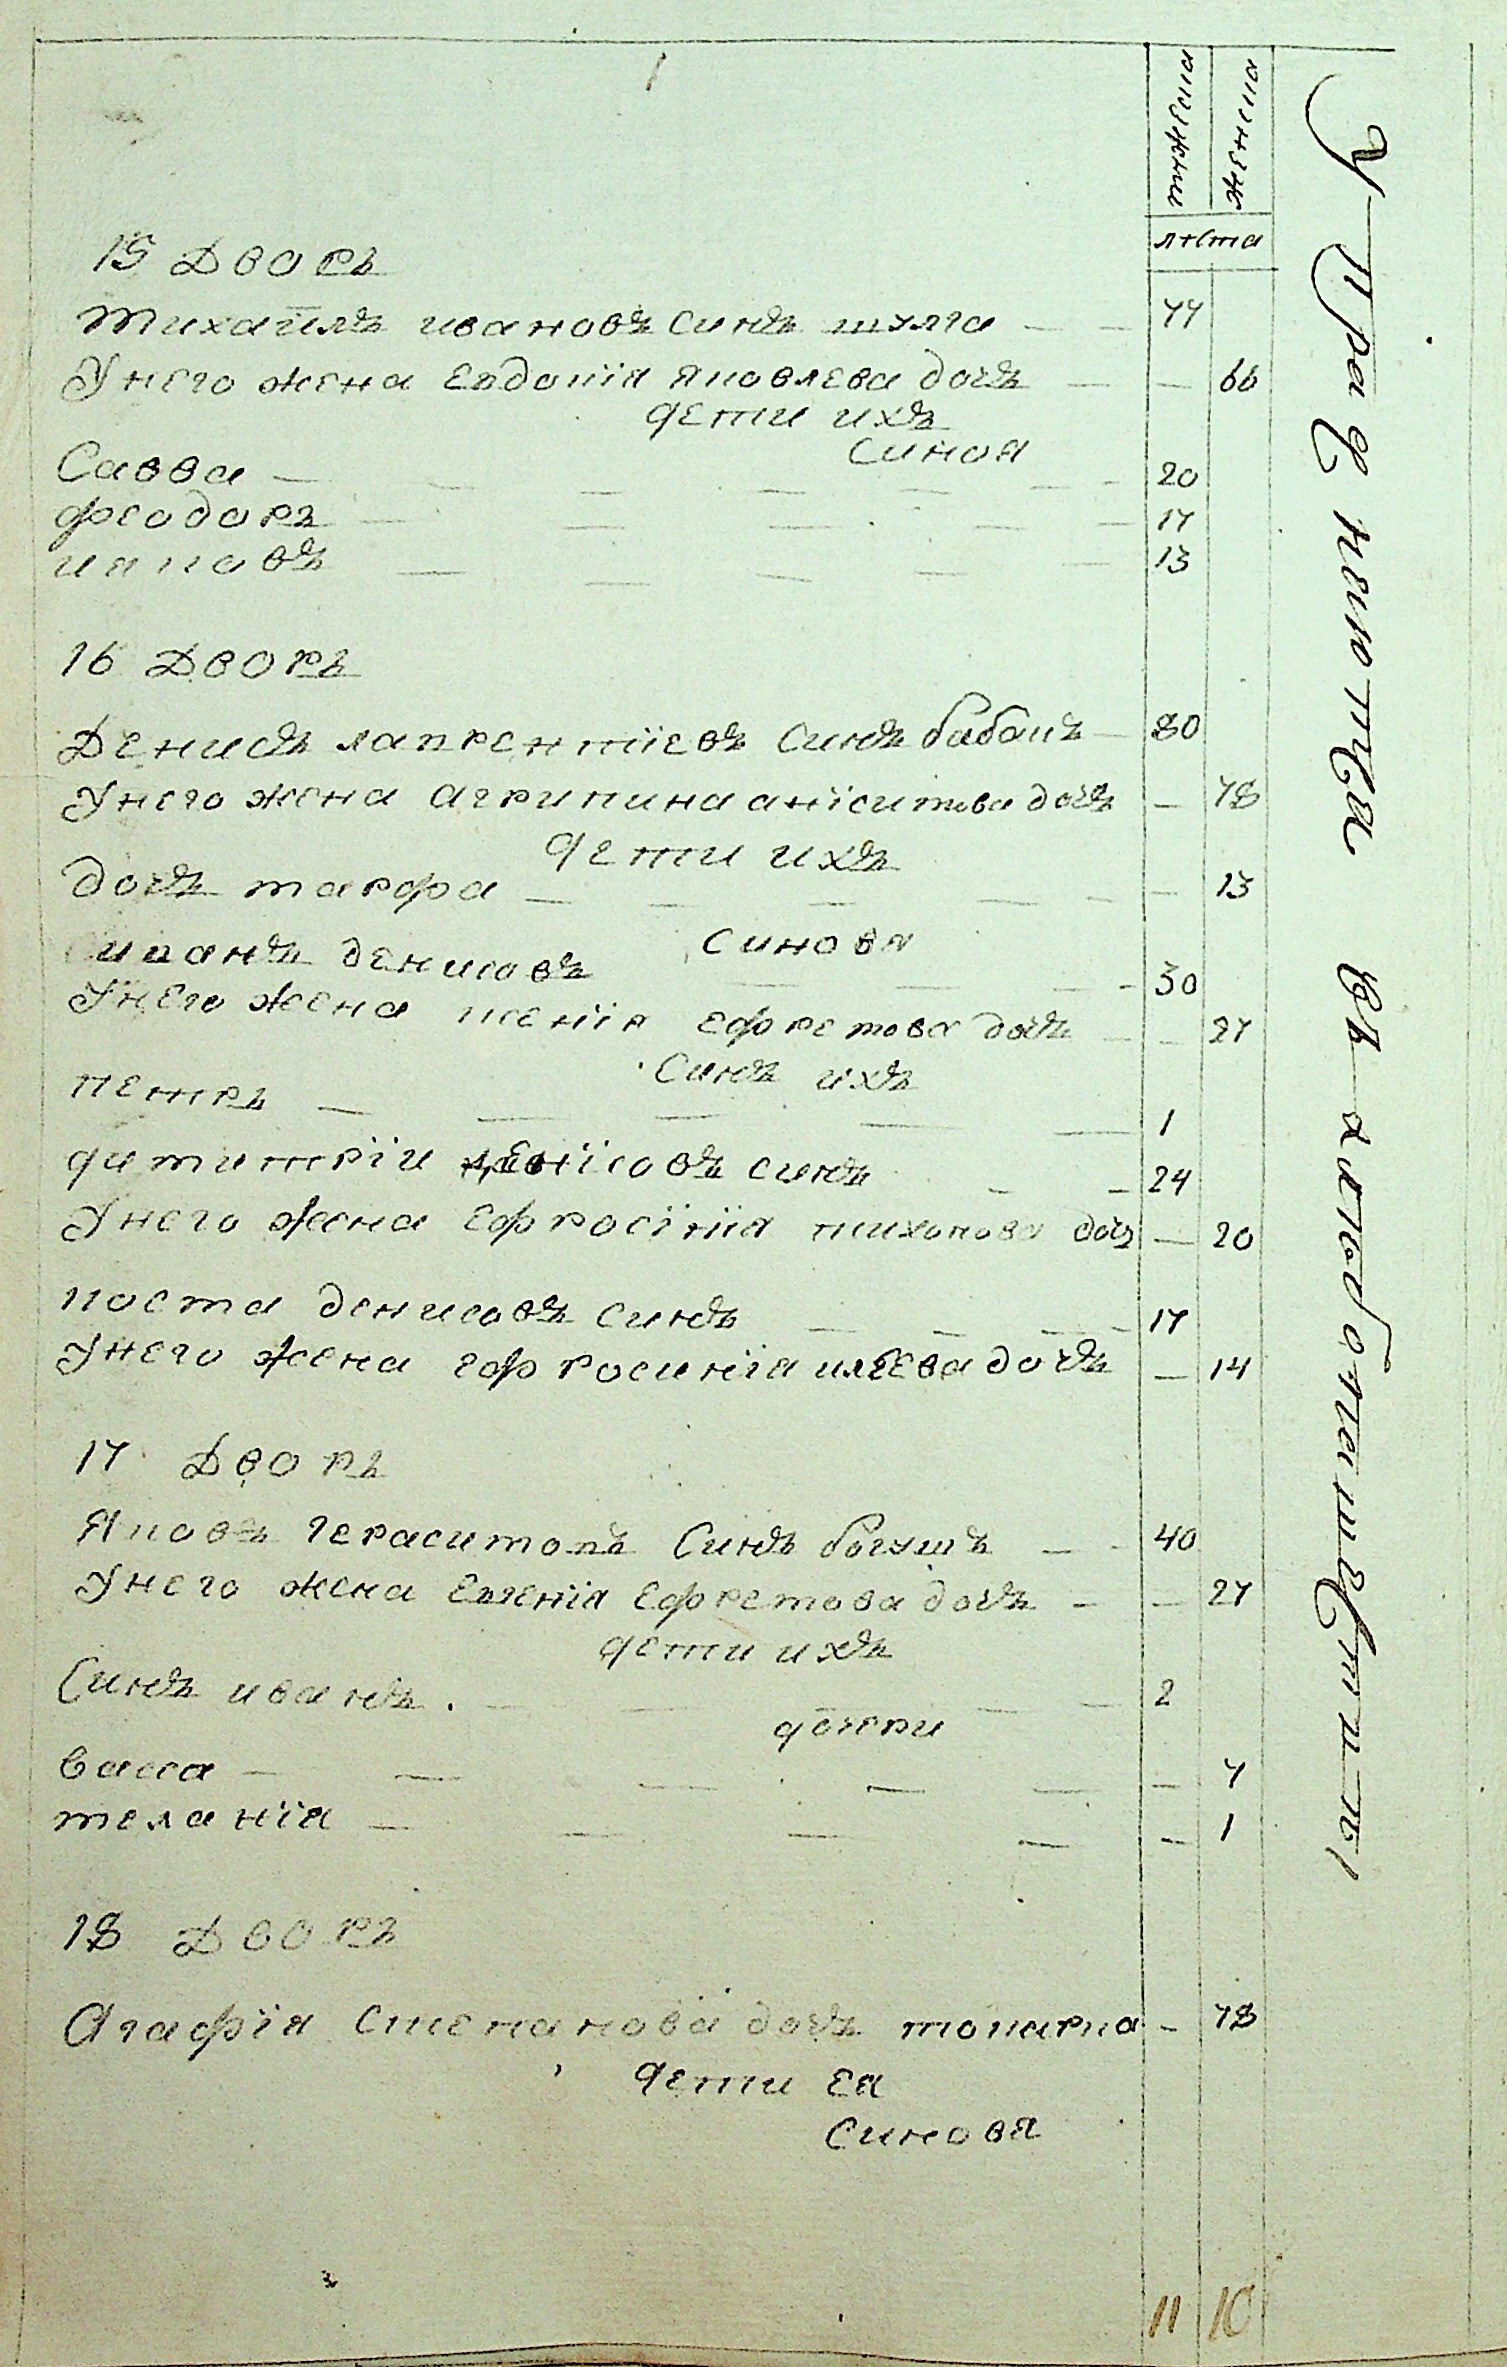 мужеска
женска
лѣта
15 Дворъ
Михайлъ ивановъ Синъ шулга 47
У него жена Евдокія Яковлева дочъ 66
дети ихъ
Синовя
Савва 20
феодоръ 17
ияковъ 13
16 Дворъ
Денисъ лаврентіевъ Синъ бабаць 80
У него жена агрипина аніисимова дочъ 78
дети ихъ
дочъ марфа 13
Синовя
иванъ денисовъ 30
У него жена ксенія ефремова дочъ 27
Синъ ихъ
петръ 1
димитрій деніисовъ синъ 24
У него жена ефросінія тихонова дочъ 20
косма денисовъ синъ 17
У него жена ефросинія илѣева дочъ 14
17 Дворъ
Яковъ Герасимовъ Синъ богушъ 40
У него жена Евгенія Ефремова дочъ 27
дети ихъ
Синъ иванъ 2
дочери
васса 7
меланія 1
18 Дворъ
Агафія Степанова дочъ токарка 78
дети ея
Синовя
11 10